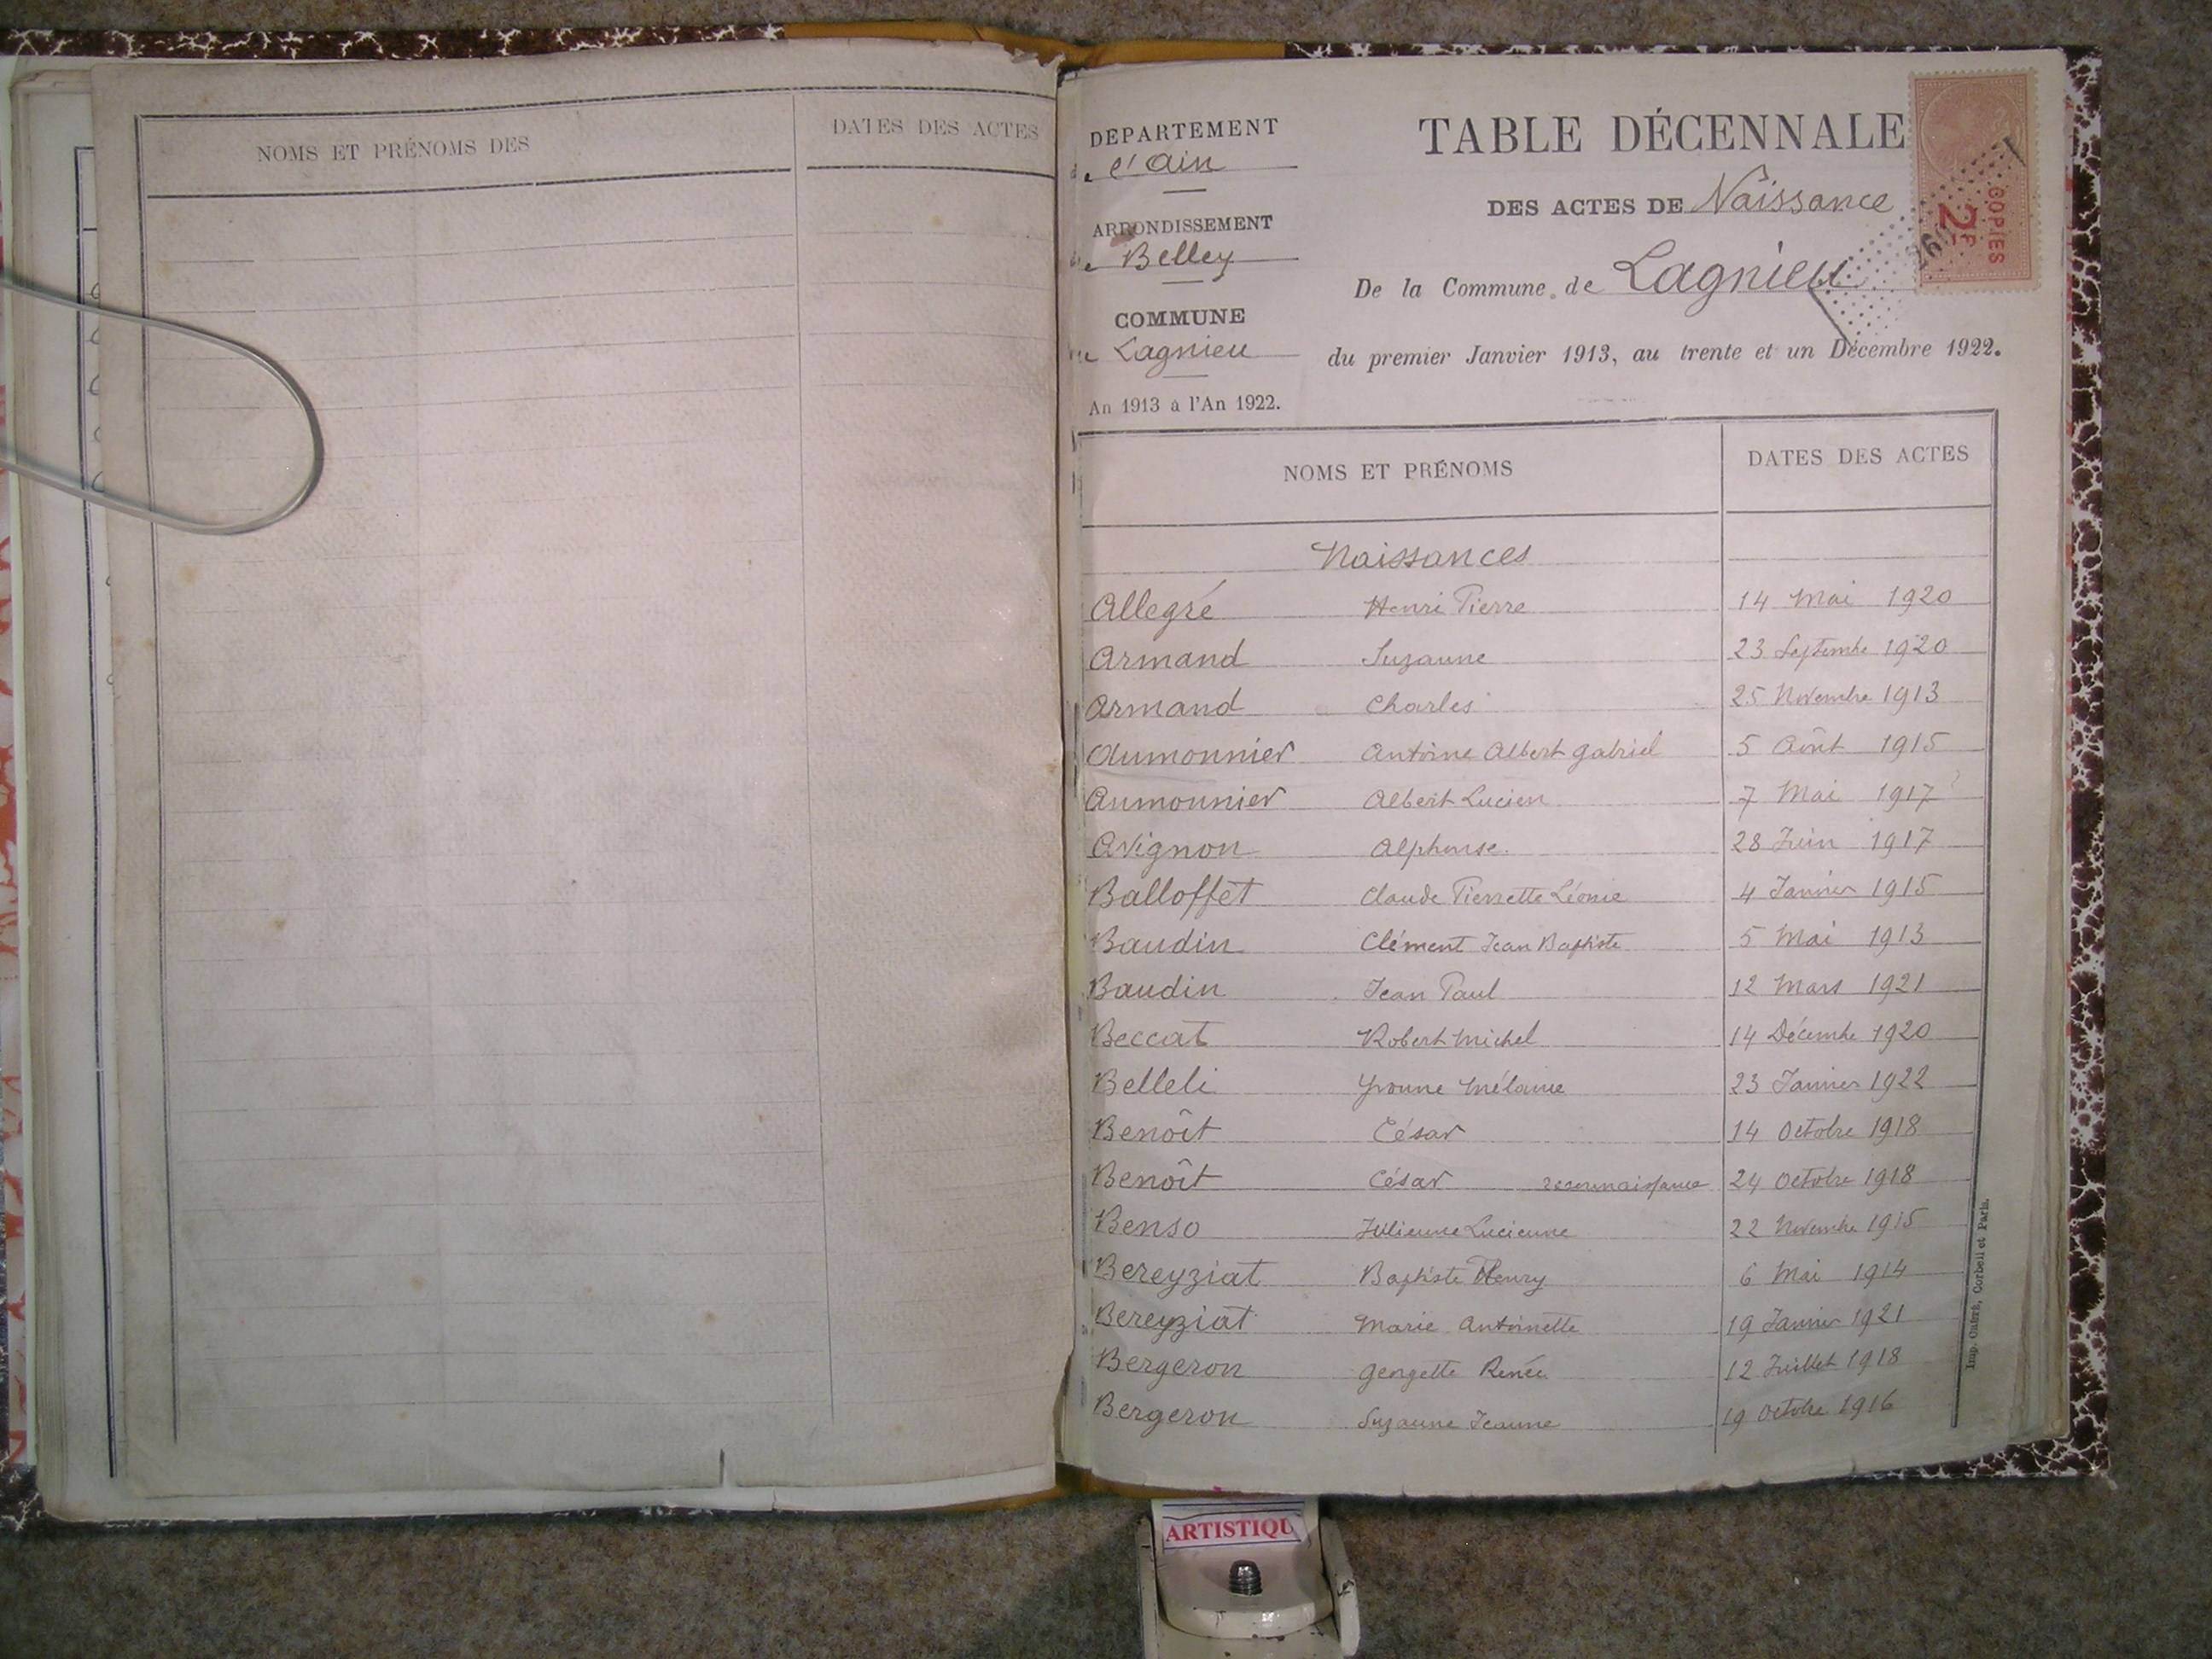 NOMS ET PRÉNOMS DES
DATES DES ACTES
DEPARTEMENT
de l'ain
ARRONDISSEMENT
de Belley
COMMUNE
de Lagnieu
An 1913 à l'An 1922.
TABLE DÉCENNALE
DES ACTES DE Naissance
De la Commune de Lagnieu
du premier Janvier 1913, au trente et un Décembre 1922.
COPIES
2F
NOMS ET PRÉNOMS DATES DES ACTES
Naissances
Allegré Henri Pierre 14 Mai 1920
Armand Suzanne 23 Septembre 1920
Armand Charles 25 Novembre 1913
Aumonnier Antoine Albert Gabriel 5 Août 1915
Aumonnier Albert Lucien 7 Mai 1917
Avignon Alphonse. 28 Juin 1917
Balloffet Claude Pierrette Léonie 4 Janvier 1915
Baudin Clément Jean Baptiste 5 Mai 1913
Baudin Jean Paul 12 Mars 1921
Beccat Robert Michel 14 Décembre 1920
Belleli Yvonne Mélanie 23 Janvier 1922
Benoît César 14 Octobre 1918
Benoît César reconnaissance 24 Octobre 1918
Benso Julienne Lucienne 22 Novembre 1915
Bereyziat Baptiste Henry 6 Mai 1914
Bereyziat Marie Antoinette 19 Janvier 1921
Bergeron Georgette Renée 12 Juillet 1918
Bergeron Suzanne Jeanne 19 Octobre 1916
Corbeil et Paris.
ARTISTIQU